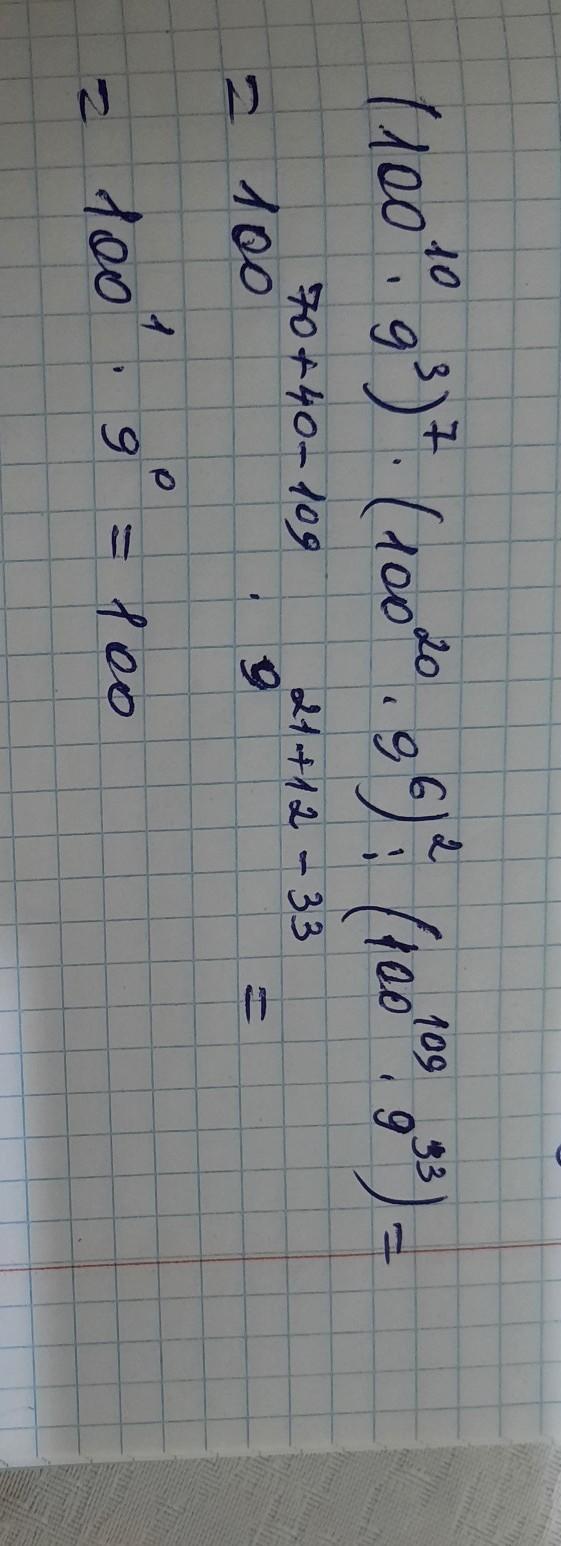 (100¹⁰ · 9³)⁷ · (100²⁰ · 9⁶)² : (100¹⁰⁹ · 9³³) =
= 100⁷⁰⁺⁴⁰⁻¹⁰⁹ · 9²¹⁺¹²⁻³³ =
= 100¹ · 9⁰ = 100